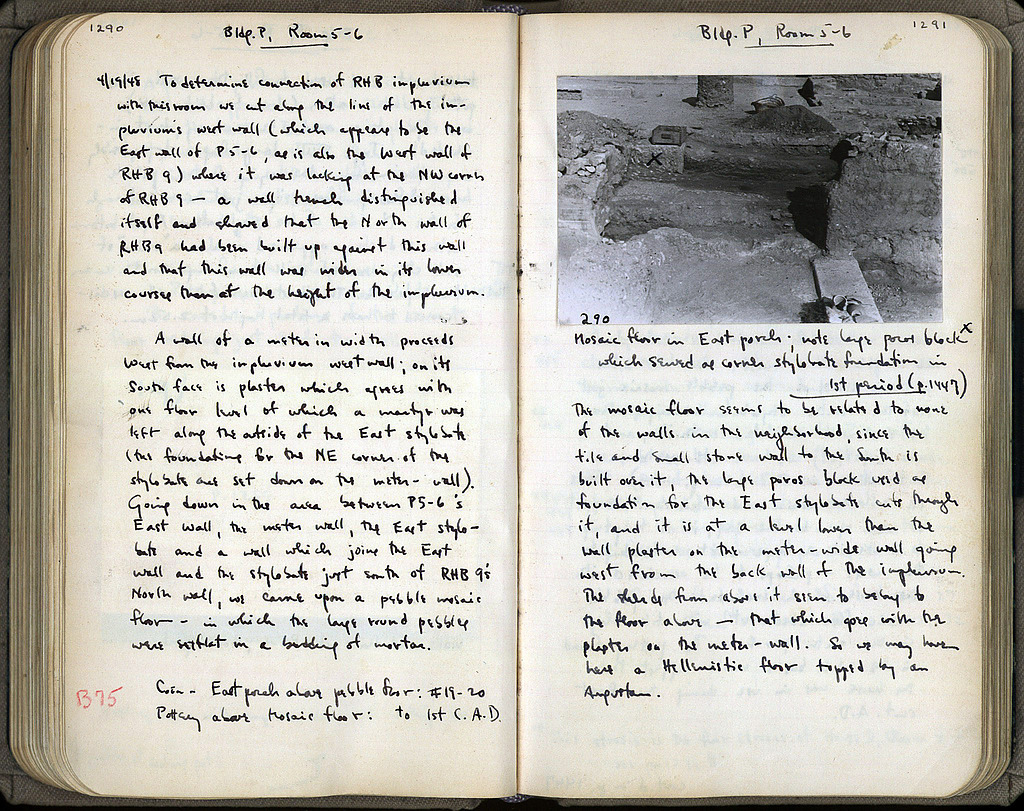 1290
Bldg. P, Room 5-6
4/19/48 To determine connection of RHB impluvium
with this room we cut along the line of the im-
pluvium's west wall (which appears to be the
East wall of P 5-6, as is also the West wall of
RHB 9) where it was lacking at the NW corner
of RHB 9 — a wall trench distinguished
itself and showed that the North wall of
RHB 9 had been built up against this wall
and that this wall was wider in its lower
courses than at the height of the impluvium.
A wall of a meter in width proceeds
West from the impluvium west wall; on its
South face is plaster which agrees with
one floor level of which a martyr was
left along the outside of the East stylobate
(the foundations for the NE corner of the
stylobate are set down on the meter-wall).
Going down in the area between P5-6's
East wall, the meter wall, the East stylo-
bate and a wall which joins the East
wall and the stylobate just south of RHB 9's
North wall, we came upon a pebble mosaic
floor - in which the large round pebbles
were set flat in a bedding of mortar.
B75
Coin - East porch above pebble floor: #19-20
Pottery above Mosaic floor: to 1st C. A.D.
1291
Bldg. P, Room 5-6
X
290
Mosaic floor in East porch; note large poros block X
which served as corner stylobate foundation in
1st period (p. 1447)
The mosaic floor seems to be related to none
of the walls in the neighborhood, since the
tile and small stone wall to the South is
built over it, the large poros block used as
foundation for the East stylobate cuts through
it, and it is at a level lower than the
wall plaster on the meter-wide wall going
west from the back wall of the impluvium.
The sherds from above it seem to belong to
the floor above — that which goes with the
plaster on the meter-wall. So we may have
here a Hellenistic floor topped by an
Augustan.